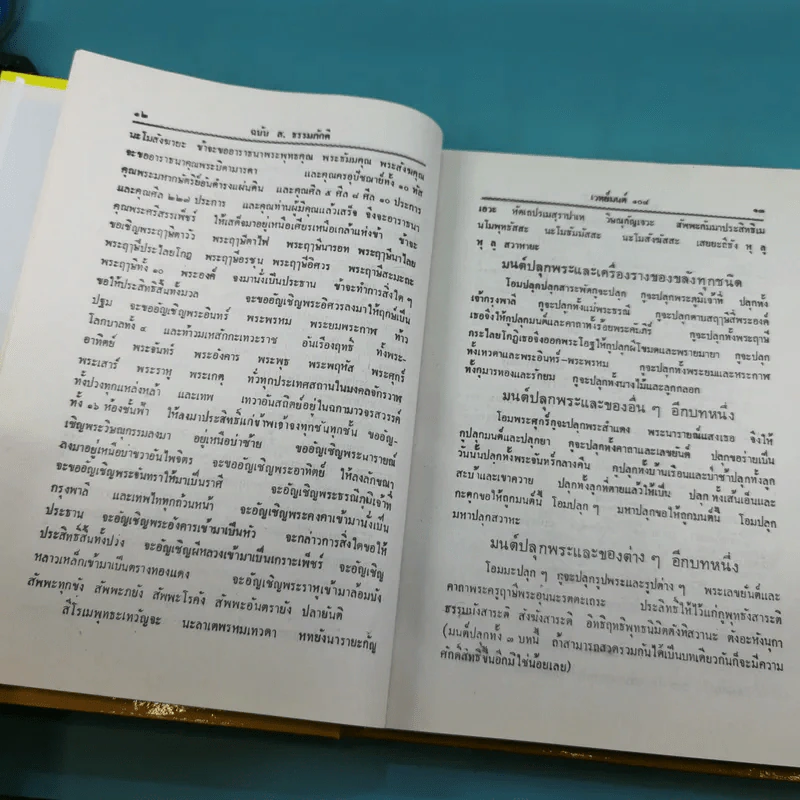 ๑๒
ฉบับ ส. ธรรมภักดี
นะโมสังฆายะ ข้าจะขออาราธนาพระพุทธคุณ พระธัมมคุณ พระสังฆคุณ
จะขออาราธนาคุณพระบิดามารดา และคุณครูอุปัชฌาย์ทั้ง ๑๐ ทัส
คุณพระมหากษัตริย์อันดำรงแผ่นดิน และคุณศีล ๕ ศีล ๘ ศีล ๑๐ ประการ
และคุณศีล ๒๒๗ ประการ และคุณท่านผู้มีคุณแล้วเสร็จ จึงจะอาราธนา
คุณพระศรีสรรเพ็ชร์ ให้เสด็จมาอยู่เหนือเศียรเหนือเกล้าแห่งข้า ข้าจะ
ขอเชิญพระฤๅษีตาวัว พระฤๅษีตาไฟ พระฤๅษีนารอท พระฤๅษีนาไลย
พระฤๅษีประไลยโกฎ พระฤๅษีอรชุน พระฤๅษีอิศวร พระฤๅษีสะมะถะ
พระฤๅษีทั้ง ๑๐ พระองค์ จงมานั่งเป็นประธาน ข้าจะทำการสิ่งใด ๆ
ขอให้ประสิทธิ์สิ้นทั้งมวล จะขออัญเชิญพระอิศวรลงมาให้ฤกษ์เป็น
ปฐม จะขออัญเชิญพระอินทร์ พระพรหม พระยมพระกาฬ ท้าว
โลกบาลทั้ง ๔ และท้าวมเหสักกะเทวะราช อันเรืองฤทธิ์ ทั้งพระ-
อาทิตย์ พระจันทร์ พระอังคาร พระพุธ พระพฤหัส พระศุกร์
พระเสาร์ พระราหู พระเกตุ ทั่วทุกประเทศสถานในมงคลจักรวาฬ
ทั้งปวงทุกแห่งหล้า และเทพ เทวาอันสถิตย์อยู่ในฉกามาวจรสวรรค์
ทั้ง ๑๖ ห้องชั้นฟ้า ให้ลงมาประสิทธิ์แก่ข้าพเจ้าจงทุกชั้นทุกชั้น ขออัญ-
เชิญพระวิษณุกรรมลงมา อยู่เหนือบ่าซ้าย ขออัญเชิญพระนารายณ์
ลงมาอยู่เหนือบ่าขวาอันไพจิตร จะขออัญเชิญพระอาทิตย์ ให้ลงลักขณา
จะขออัญเชิญพระจันทราให้มาเป็นราศี จะอัญเชิญพระธรณีภูมิเจ้าที่
กรุงพาลี และเทพไททุกถ้วนหน้า จะอัญเชิญพระคงคาเข้ามานั่งเป็น
ประธาน จะอัญเชิญพระอังคารเข้ามาเป็นหัว จะกล่าวการสิ่งใดขอให้
ประสิทธิ์สิ้นทั้งปวง จะอัญเชิญผีหลวงเข้ามาเป็นเกราะเพ็ชร์ จะอัญเชิญ
หลาวเหล็กเข้ามาเป็นตรางทองแดง จะอัญเชิญพระราหูเข้ามาล้อมบัง
สัพพะทุกขัง สัพพะภยัง สัพพะโรคัง สัพพะอันตรายัง ปลายันติ
สิโรเมพุทธะเทวัญจะ นะลาเตพรหมเทวตา หทยังนารายะกัญ
เวทย์มนต์ ๑๐๘
๑๓
เจวะ หัตเถปรเมสุราปาเท วิษณุกัญเจวะ สัพพะกัมมาประสิทธิเม
นโมพุทธัสสะ นะโมธัมมัสสะ นะโมสังฆัสสะ เสยยะถีธัง หุ ลู
หุ ลู สวาหายะ
มนต์ปลุกพระและเครื่องรางของขลังทุกชนิด
โอมปลุกปลุกสาระพัดกูจะปลุก กูจะปลุกพระภูมิเจ้าที่ ปลุกทั้ง
เจ้ากรุงพาลี กูจะปลุกทั้งแม่พระธรณี กูจะปลุกตามฤๅษีสี่พระองค์
เธอจึงให้กูปลุกมนต์และคาถาทั้งร้อยพระคัมภีร์ กูจะปลุกทั้งพระฤๅษี
กระไลยโกฏิเธอจึงออกพระโอฐให้กูปลุกผีโขมดและพรายมายา กูจะปลุก
ทั้งเทวดาและพระอินทร์-พระพรหม กูจะปลุกทั้งพระยมและพระกาฬ
ทั้งกุมารทองและรักยม กูจะปลุกทั้งนางไม้และลูกลอก
มนต์ปลุกพระและของอื่น ๆ อีกบทหนึ่ง
โอมพระศุกร์กูจะปลุกพระสำแดง พระนารายณ์แสงเธอ จึงให้
กูปลุกมนต์และปลุกยา กูจะปลุกทั้งคาถาและเลขยันต์ ปลุกขอร่ายเป็น
วันนั้นปลุกทั้งพระจันทร์กลางคืน กูปลุกทั้งบ้านเรือนและป่าช้าปลุกทั้งลูก
สะบ้าและเขาควาย ปลุกทั้งลูกที่ตายแล้วให้เป็น ปลุกทั้งเส้นเอ็นและ
กะดูกขอให้ถูกมนต์นี้ โอมปลุก ๆ มหาปลุกขอให้ถูกมนต์นี้ โอมปลุก
มหาปลุกสวาหะ
มนต์ปลุกพระและของต่าง ๆ อีกบทหนึ่ง
โอมมะปลุก ๆ กูจะปลุกรูปพระและรูปต่าง ๆ พระเลขยันต์และ
คาถาพระครูฤๅษีพระอุนนะรตตะเถระ ประสิทธิ์ให้ไว้แก่กูพุทธังสาระติ
ธรรมมังสาระติ สังฆังสาระติ อิทธิฤทธิพุทธนิมิตตังหิสวานะ ตังอะหังนุกา
(มนต์ปลุกทั้ง ๓ บทนี้ ถ้าสามารถสวดรวมกันได้เป็นบทเดียวกันก็จะมีความ
ศักดิ์สิทธิ์ขึ้นอีกมิใช่น้อยเลย)